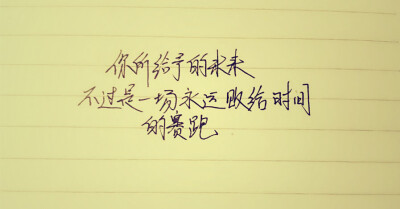 你所给予的未来
不过是一场永远败给时间
的赛跑